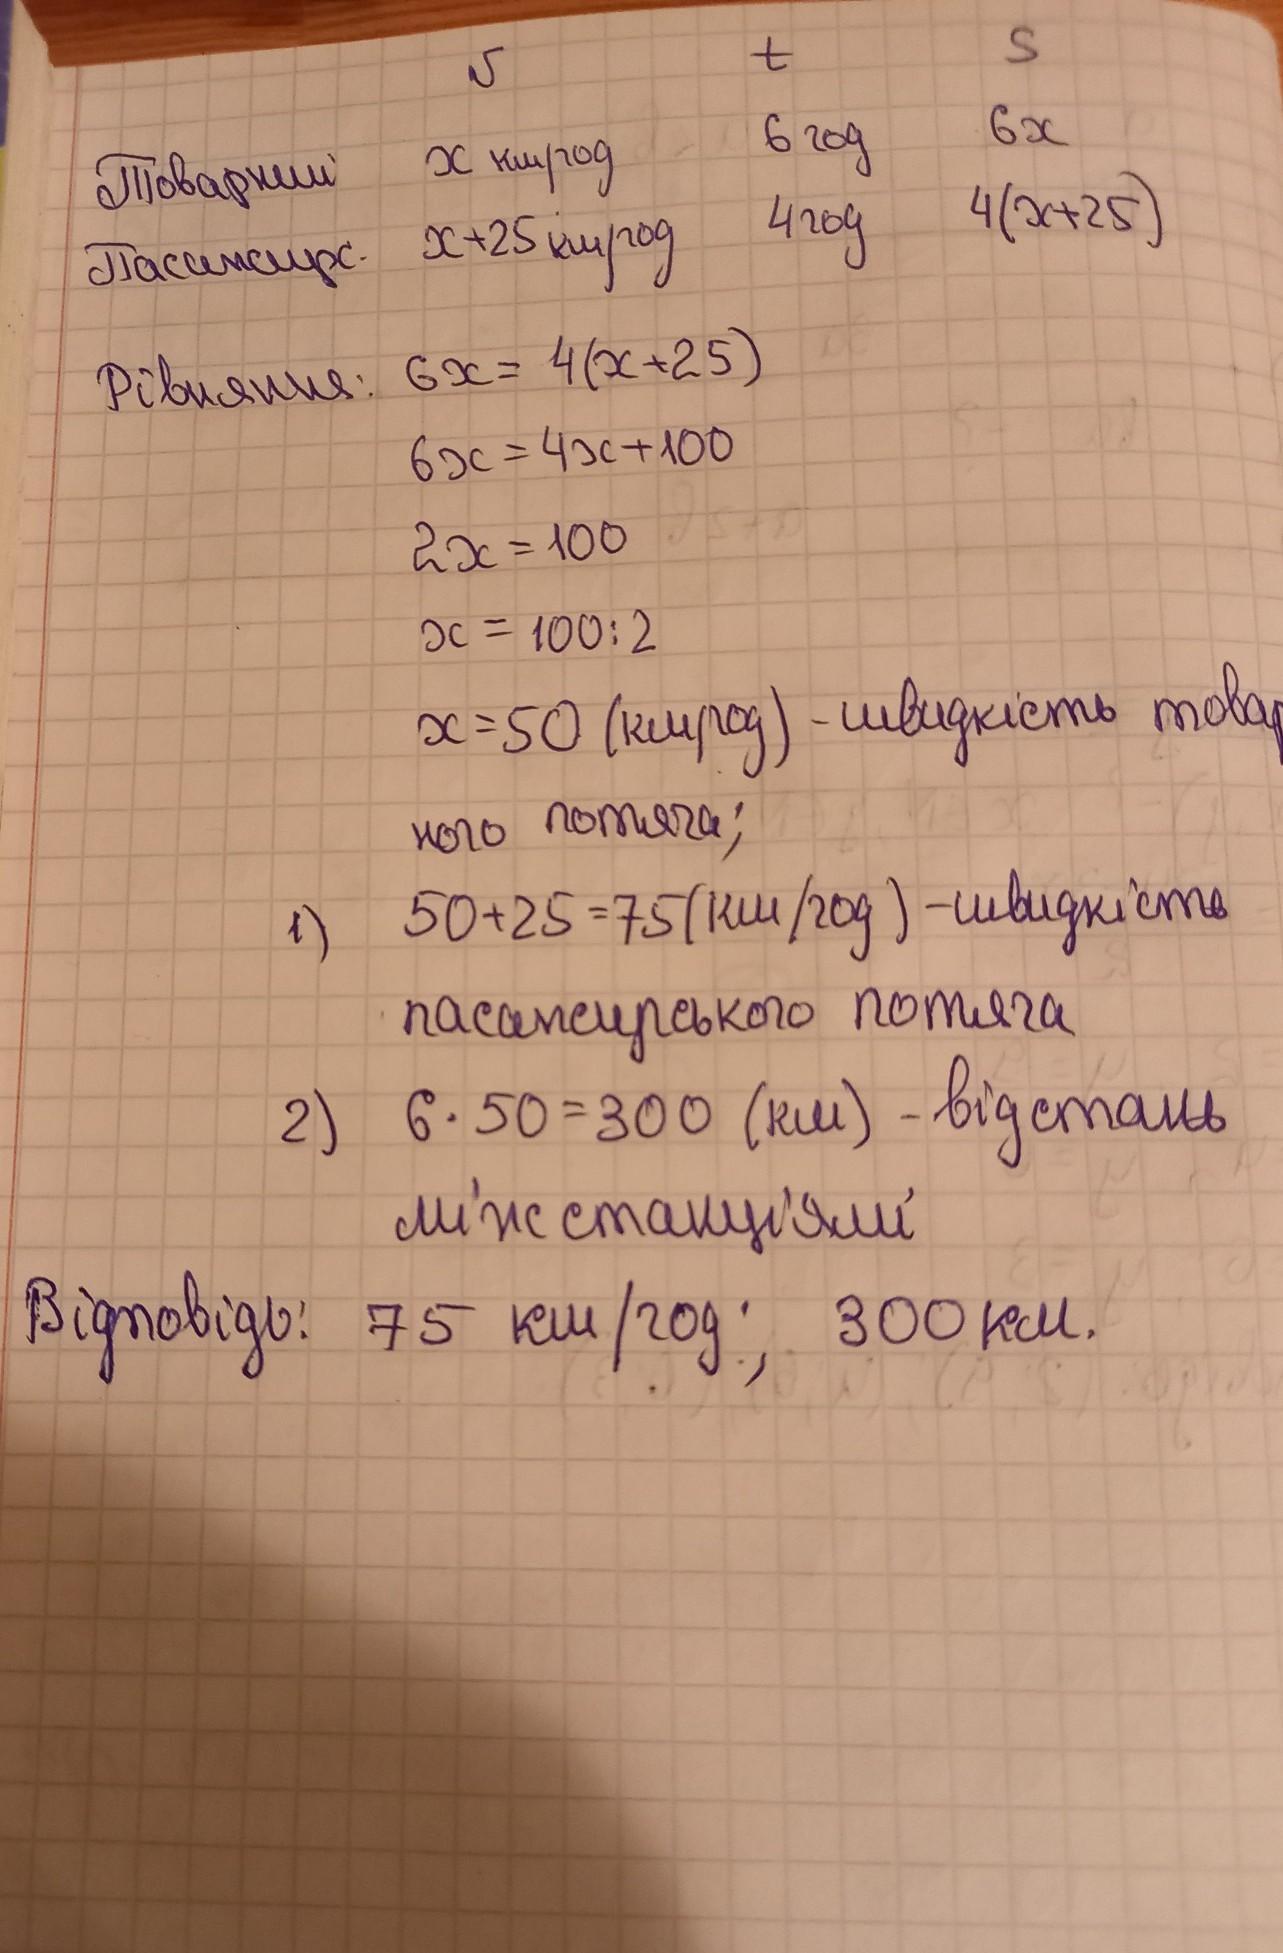 v t S
Товарний x км/год 6 год 6x
Пасажирс. x+25 км/год 4 год 4(x+25)
Рівняння: 6x = 4(x+25)
6x = 4x+100
2x = 100
x = 100:2
x = 50 (км/год) - швидкість товар
ного потяга;
1) 50+25=75(км/год) - швидкість
пасажирського потяга
2) 6·50=300 (км) - відстань
між станціями
Відповідь: 75 км/год; 300 км.